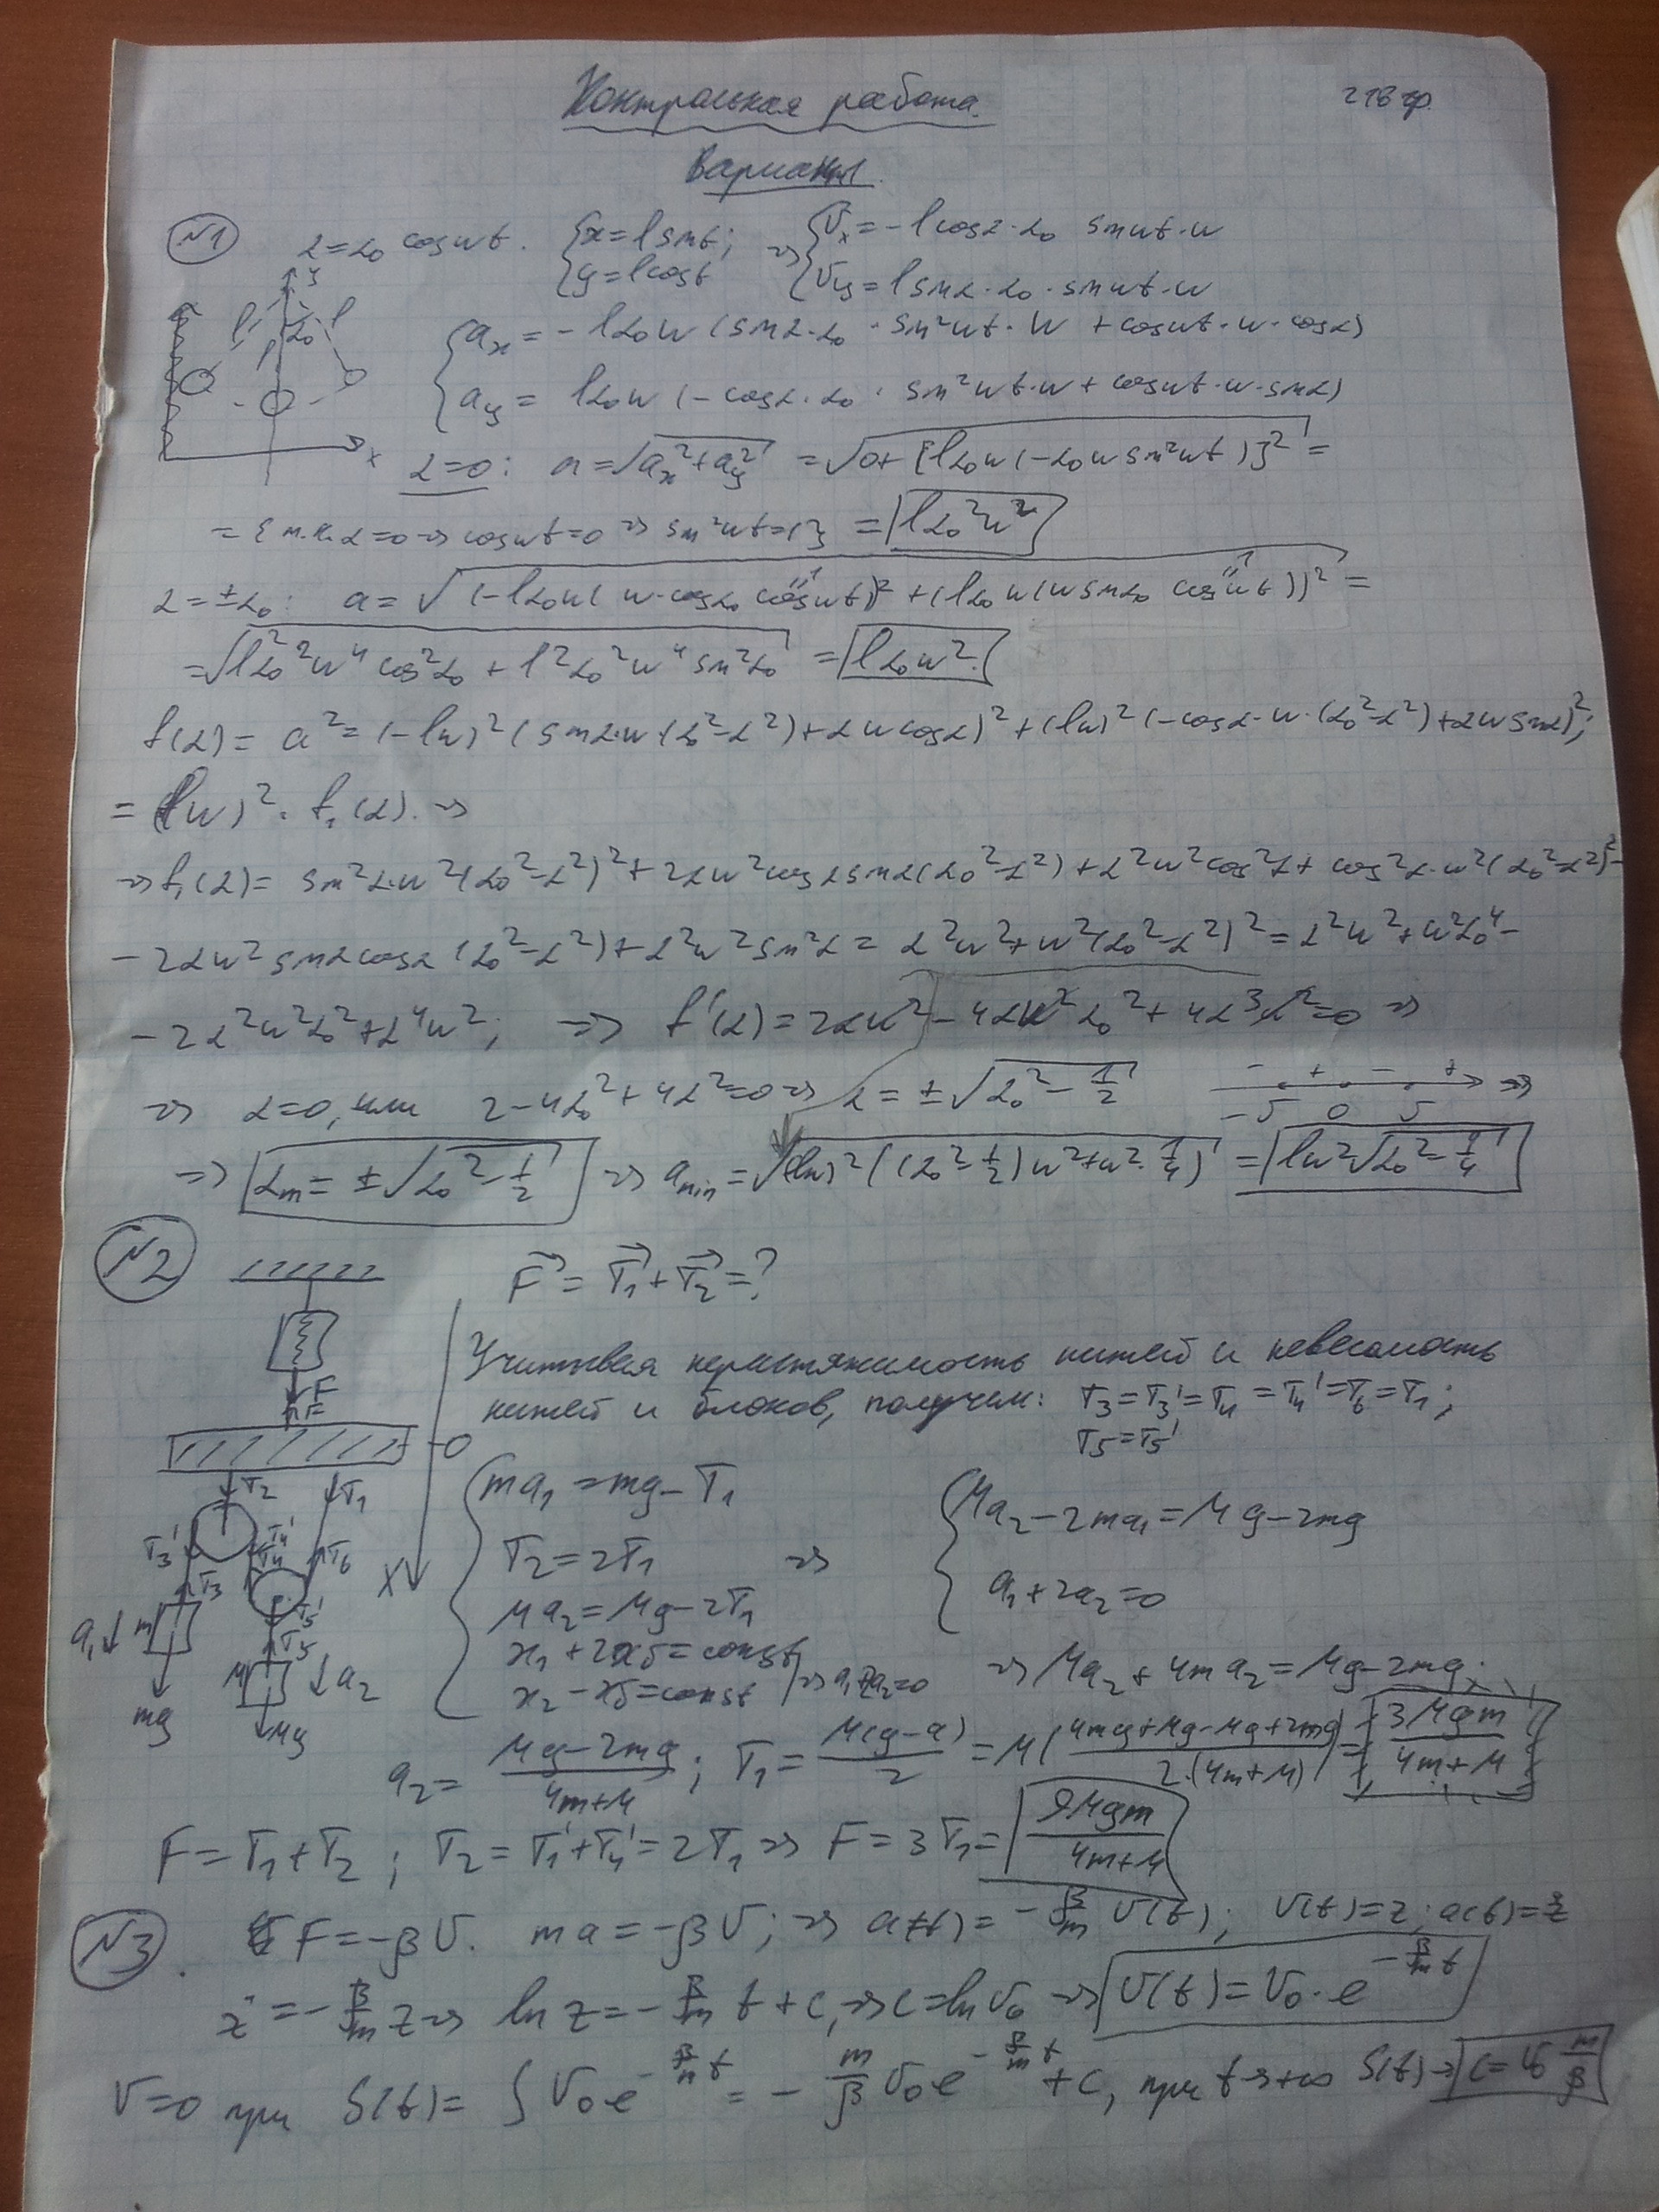 Контрольная работа. 218 гр.
Вариант 1.
№1 α = α₀ cos wt. { x = l sin t; y = l cos t ⇒ { Vx = -l cos α · α₀ sin wt · w
Vy = l sin α · α₀ · sin wt · w
y l l α₀ l x
{ ax = -lα₀w (sin α · α₀ · sin² wt · w + cos wt · w · cos α)
ay = lα₀w (-cos α · α₀ · sin² wt · w + cos wt · w · sin α)
α = 0: a = √(ax² + ay²) = √(0 + [lα₀w (-α₀w sin² wt)]²) =
= {т.к. α = 0 ⇒ cos wt = 0 ⇒ sin² wt = 1} = lα₀²w²
α = ±α₀: a = √((-lα₀w (w · cos α₀ cos wt))² + (lα₀w (w sin α₀ cos wt))²) =
= √(l²α₀²w⁴ cos² α₀ + l²α₀²w⁴ sin² α₀) = lα₀w².
f(α) = a² = (-lw)² (sin α · w (α₀² - α²) + αw cos α)² + (lw)² (-cos α · w · (α₀² - α²) + αw sin α)²;
= (lw)² · f₁(α). ⇒
⇒ f₁(α) = sin² α · w² (α₀² - α²)² + 2αw² cos α sin α (α₀² - α²) + α²w² cos² α + cos² α · w² (α₀² - α²)² -
- 2αw² sin α cos α (α₀² - α²) + α²w² sin² α = α²w² + w² (α₀² - α²)² = α²w² + w²α₀⁴ -
- 2α²w²α₀² + α⁴w²; ⇒ f'(α) = 2αw² - 4αw²α₀² + 4α³w² = 0 ⇒
⇒ α = 0, или 2 - 4α₀² + 4α² = 0 ⇒ α = ±√(α₀² - 1/2) - + - + -√ 0 √ ⇒
⇒ αm = ±√(α₀² - 1/2) ⇒ amin = √((lw)² ((α₀² - 1/2) w² + w² · 1/4)) = lw² √(α₀² - 1/4)
№2 F = T₁ + T₂ = ?
Учитывая нерастяжимость нитей и невесомость
нитей и блоков, получим: T₃ = T₃' = T₄ = T₄' = T₆ = T₁;
T₅ = T₅'
F F 0 T₂ T₁ T₃' T₄' T₄ T₆ T₃ T₅' T₅ X a₁ m M a₂ mg Mg
{ ma₁ = mg - T₁ { Ma₂ - 2ma₁ = Mg - 2mg
T₂ = 2T₁ ⇒ a₁ + 2a₂ = 0
Ma₂ = Mg - 2T₁
x₁ + 2xδ = const
x₂ - xδ = const ⇒ a₁ + 2a₂ = 0 ⇒ Ma₂ + 4ma₂ = Mg - 2mg;
a₂ = (Mg - 2mg)/(4m + M); T₁ = M(g - a)/2 = M((4mg + Mg - Mg + 2mg)/(2·(4m + M))) = 3Mgm/(4m + M)
F = T₁ + T₂; T₂ = T₁' + T₄' = 2T₁ ⇒ F = 3T₁ = 9Mgm/(4m + M)
№3. F = -βV. ma = -βV; ⇒ a(t) = -β/m V(t); V(t) = z; a(t) = ż
ż = -β/m z ⇒ ln z = -β/m t + c, ⇒ c = ln V₀ ⇒ V(t) = V₀ · e^(-β/m t)
V = 0 при S(t) = ∫ V₀ e^(-β/m t) = -m/β V₀ e^(-β/m t) + C, при t → +∞ S(t) → C = V₀ m/β